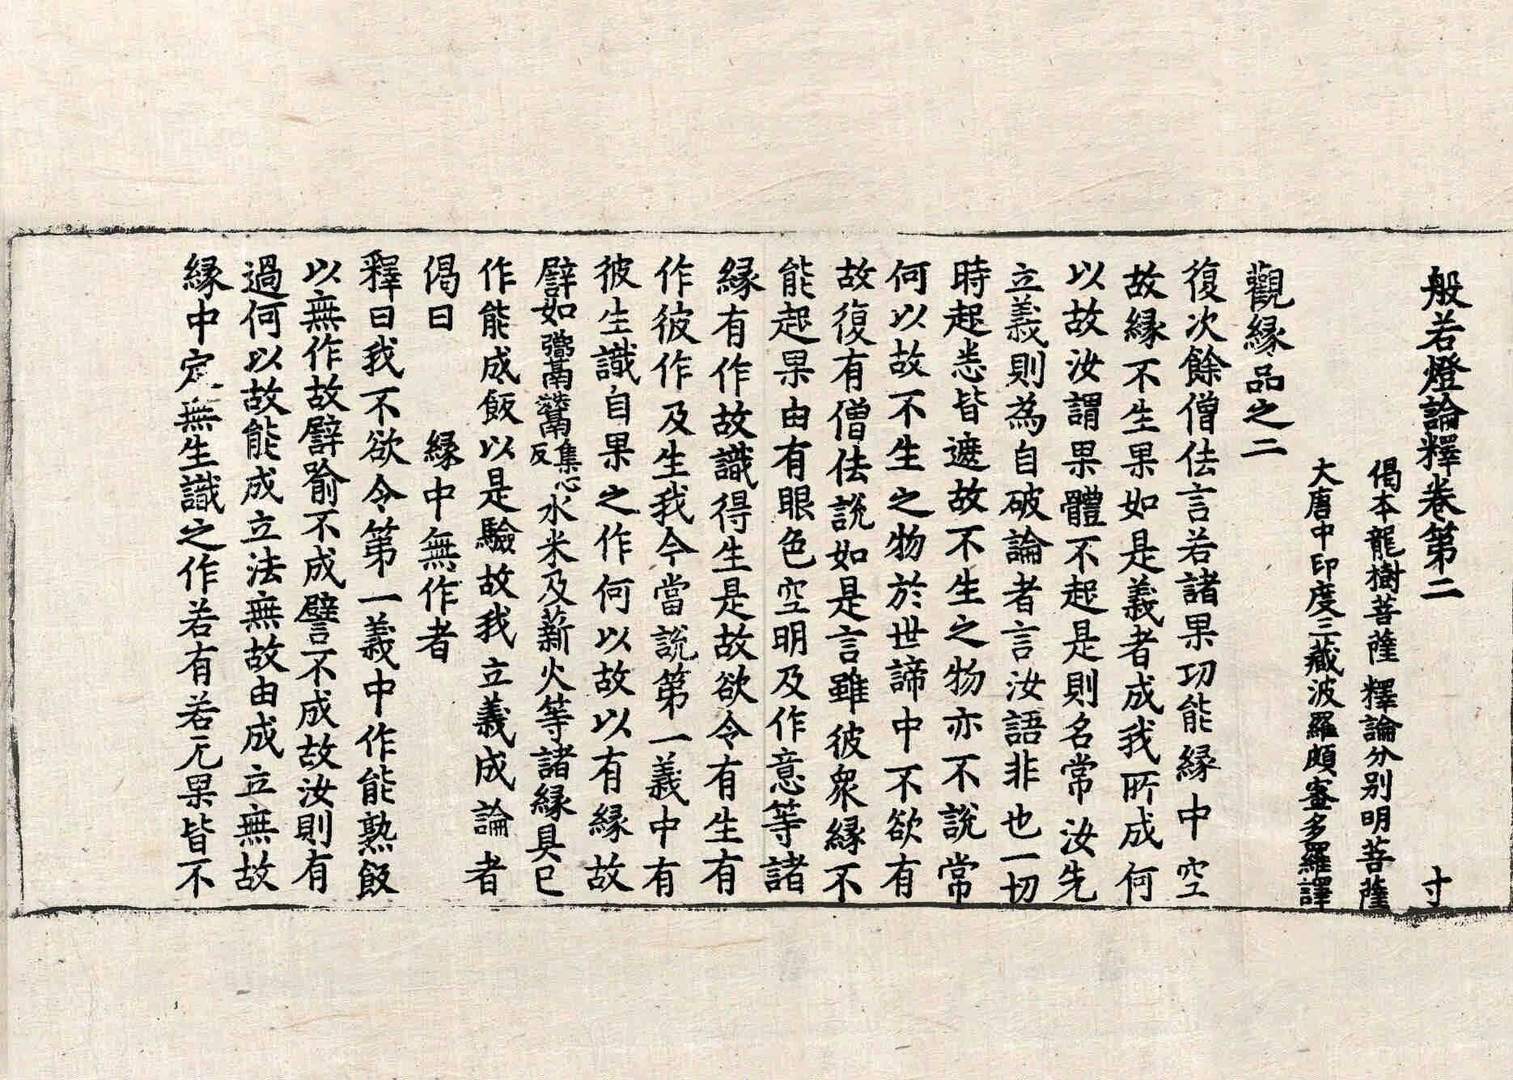 般若燈論釋卷第二 寸
偈本龍樹菩薩 釋論分別明菩薩
大唐中印度三藏波羅頗蜜多羅譯
觀緣品之二
復次餘僧佉言若諸果功能緣中空
故緣不生果如是義者成我所成何
以故汝謂果體不起是則名常汝先
立義則為自破論者言汝語非也一切
時起悉皆遮故不生之物亦不說常
何以故不生之物於世諦中不欲有
故復有僧佉說如是言雖彼衆緣不
能起果由有眼色空明及作意等諸
緣有作故識得生是故欲令有生有
作彼作及生我今當說第一義中有
彼生識自果之作何以故以有緣故
譬如集心反水米及薪火等諸緣具已
作能成飯以是驗故我立義成論者
偈曰 緣中無作者
釋曰我不欲令第一義中作能熟飯
以無作故譬喻不成譬不成故汝則有
過何以故能成立法無故由成立無故
緣中定無生識之作若有若无果皆不